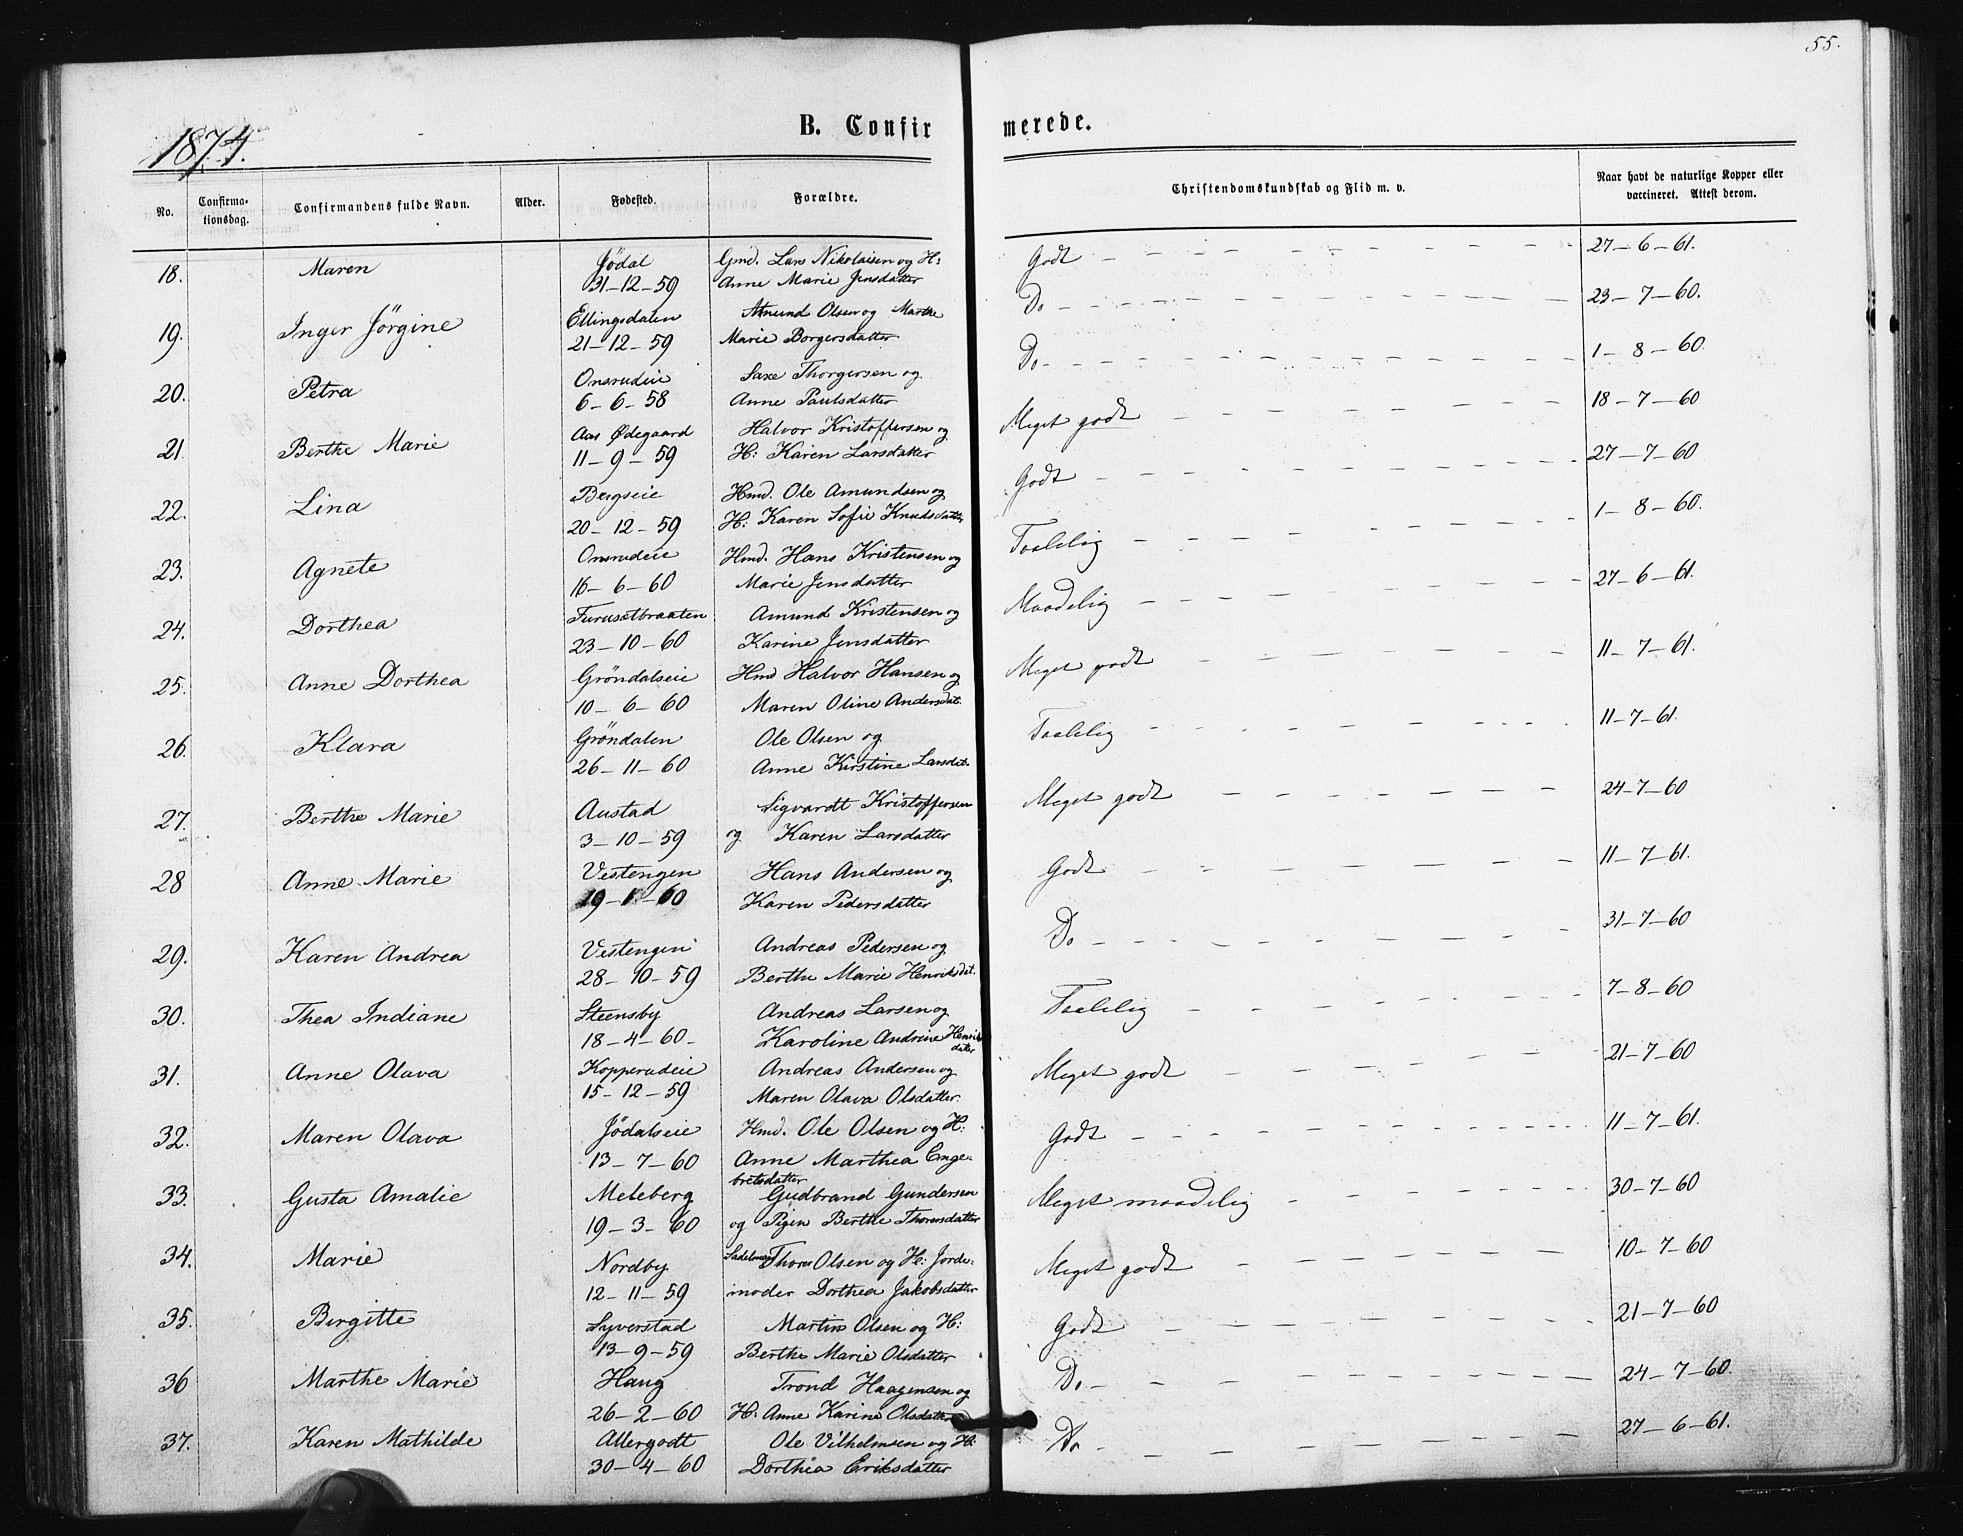 55.
1874.
B. Confirmerede.
No. Confirmationsdag. Confirmandens fulde Navn. Alder. Fødested. Forældre. Christendomskundskab og Flid m. v. Naar havt de naturlige Kopper eller vaccineret. Attest derom.
18. Maren Jødal Gmd. Lars Nikolaisen og H: Godt 27-6-61.
31-12-59 Anne Marie Jensdatter
19. Inger Jörgine Ellingsdalen Amund Olsen og Marthe Do 23-7-60.
21-12-59 Marie Borgersdatter
20. Petra Onsrudeie Saxe Thorgersen og Do 1-8-60.
6-6-58 Anne Paulsdatter
21. Berthe Marie Aas Ødegaard Halvor Kristoffersen og Meget godt 18-7-60
11-9-59 H: Karen Larsdatter
22. Lina Bergseie Hmd. Ole Amundsen og Godt 27-7-60
20-12-59 H: Karen Sofie Knudsdatter
23. Agnete Onsrudeie Hmd. Hans Kristensen og Taalelig 1-8-60.
16-6-60 Marie Jensdatter
24. Dorthea Furusetbraaten Amund Kristensen og Maadelig 27-6-61.
23-10-60 Karine Jensdatter
25. Anne Dorthea Gröndalseie Hmd Halvor Hansen og Meget godt 11-7-61.
10-6-60 Maren Oline Andersdat.
26. Klara Gröndalen Ole Olsen og Taalelig 11-7-61.
26-11-60 Anne Kirstine Larsdat.
27. Berthe Marie Austad Sigvardt Kristoffersen Meget godt 24-7-60
3-10-59 og Karen Larsdatter
28 Anne Marie Vestengen Hans Andersen og Godt 11-7-61.
19-1-60 Karen Pedersdatter
29. Karen Andrea Vestengen Andreas Pedersen og Do 31-7-60
28-10-59 Berthe Marie Henriksdat.
30. Thea Indiane Steensby Andreas Larsen og Taalelig 7-8-60
18-4-60- Karoline Andrine Henriksdatter
31. Anne Olava Kopperudeie Andreas Andersen og Meget godt 21-7-60
15-12-59 Maren Olava Olsdatter
32. Maren Olava Jödalseie Hmd. Ole Olsen og H: Godt 11-7-61.
13-7-60 Anne Marthea Engebretsdatter
33. Gusta Amalie Meleberg Gudbrand Gundersen Meget maadelig 30-7-60
19-3-60 og Pigen Berthe Thorensdatter
34. Marie Nordby Sadelmager Thore Olsen og H: Jorde- Meget godt 10-7-60
12-11-59 moder Dorthea Jakobsdatter
35. Birgitte Syverstad Martin Olsen og H: Godt 21-7-60
13-9-59 Berthe Marie Olsdatter
36 Marthe Marie Haug Trond Haagensen og Do 24-7-60.
26-2-60 H: Anne Karine Olsdatter
37. Karen Mathilde Allergodt Ole Vilhelmsen og H: Do 27-6-61.
30-4-60 Dorthea Eriksdatter